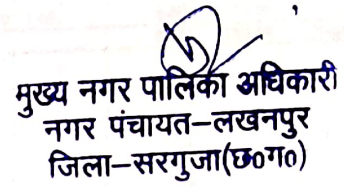 मुख्य नगर पालिका अधिकारी
नगर पंचायत–लखनपुर
जिला–सरगुजा(छ०ग०)